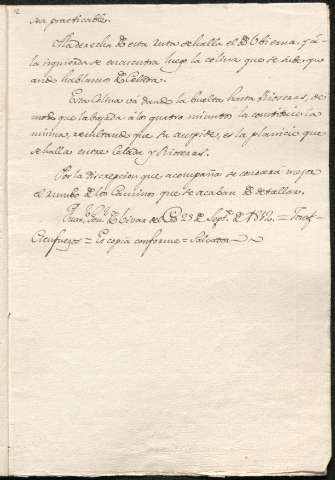 sea practicable.
A la derecha de esta ruta se halla el de Ubierna, y á
la izquierda se encuentra luego la colina que se sube, qu-
ando hablamos de Celada.
Esta Colina va dando la buelta hasta Rioseras, de
modo que la bajada á los quatro minutos la constituye la
misma, resultando que su cuspide, es la planicie que
se halla entre Celada y Rioseras.
Por la discrepcion que acompaña se conocera mejor
el rumbo de los Caminos que se acaban de detallar.
Quar.l Gen.l de Vivar del Cid 23 de Sept.e de 1812. = Josef
Cienfuegos = Es copia conforme = Salvador